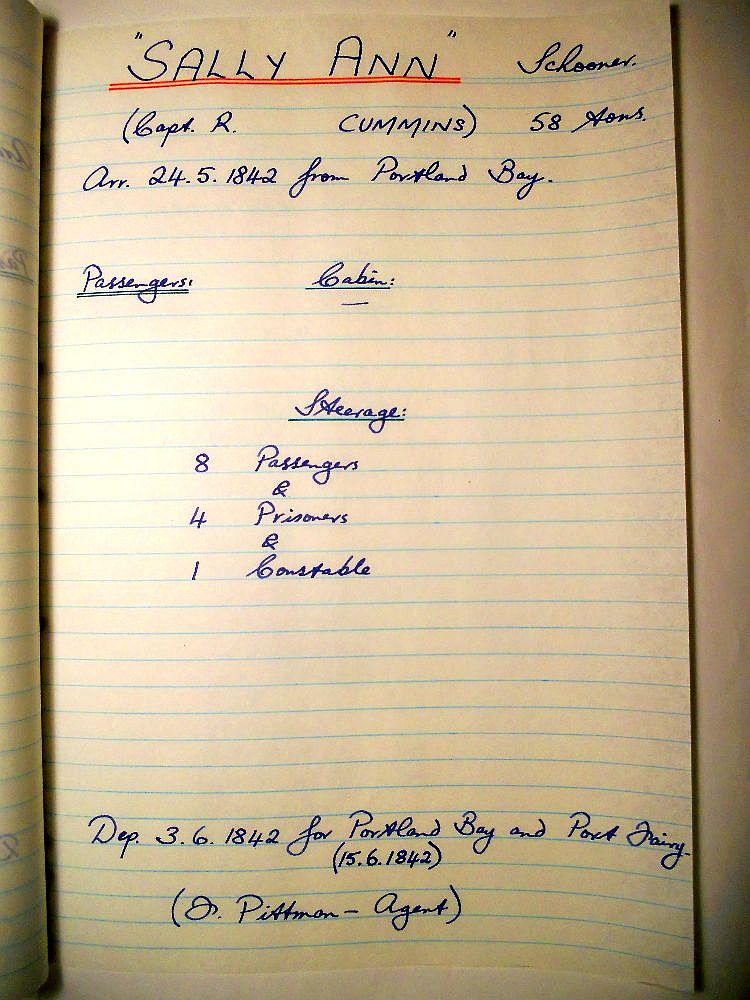 "SALLY ANN" Schooner.
(Capt. R. CUMMINS) 58 tons.
Arr. 24.5.1842 from Portland Bay.
Passengers: Cabin:
—
Steerage:
8 Passengers
&
4 Prisoners
&
1 Constable
Dep. 3.6.1842 for Portland Bay and Port Fairy.
(15.6.1842)
Pittman - Agent)